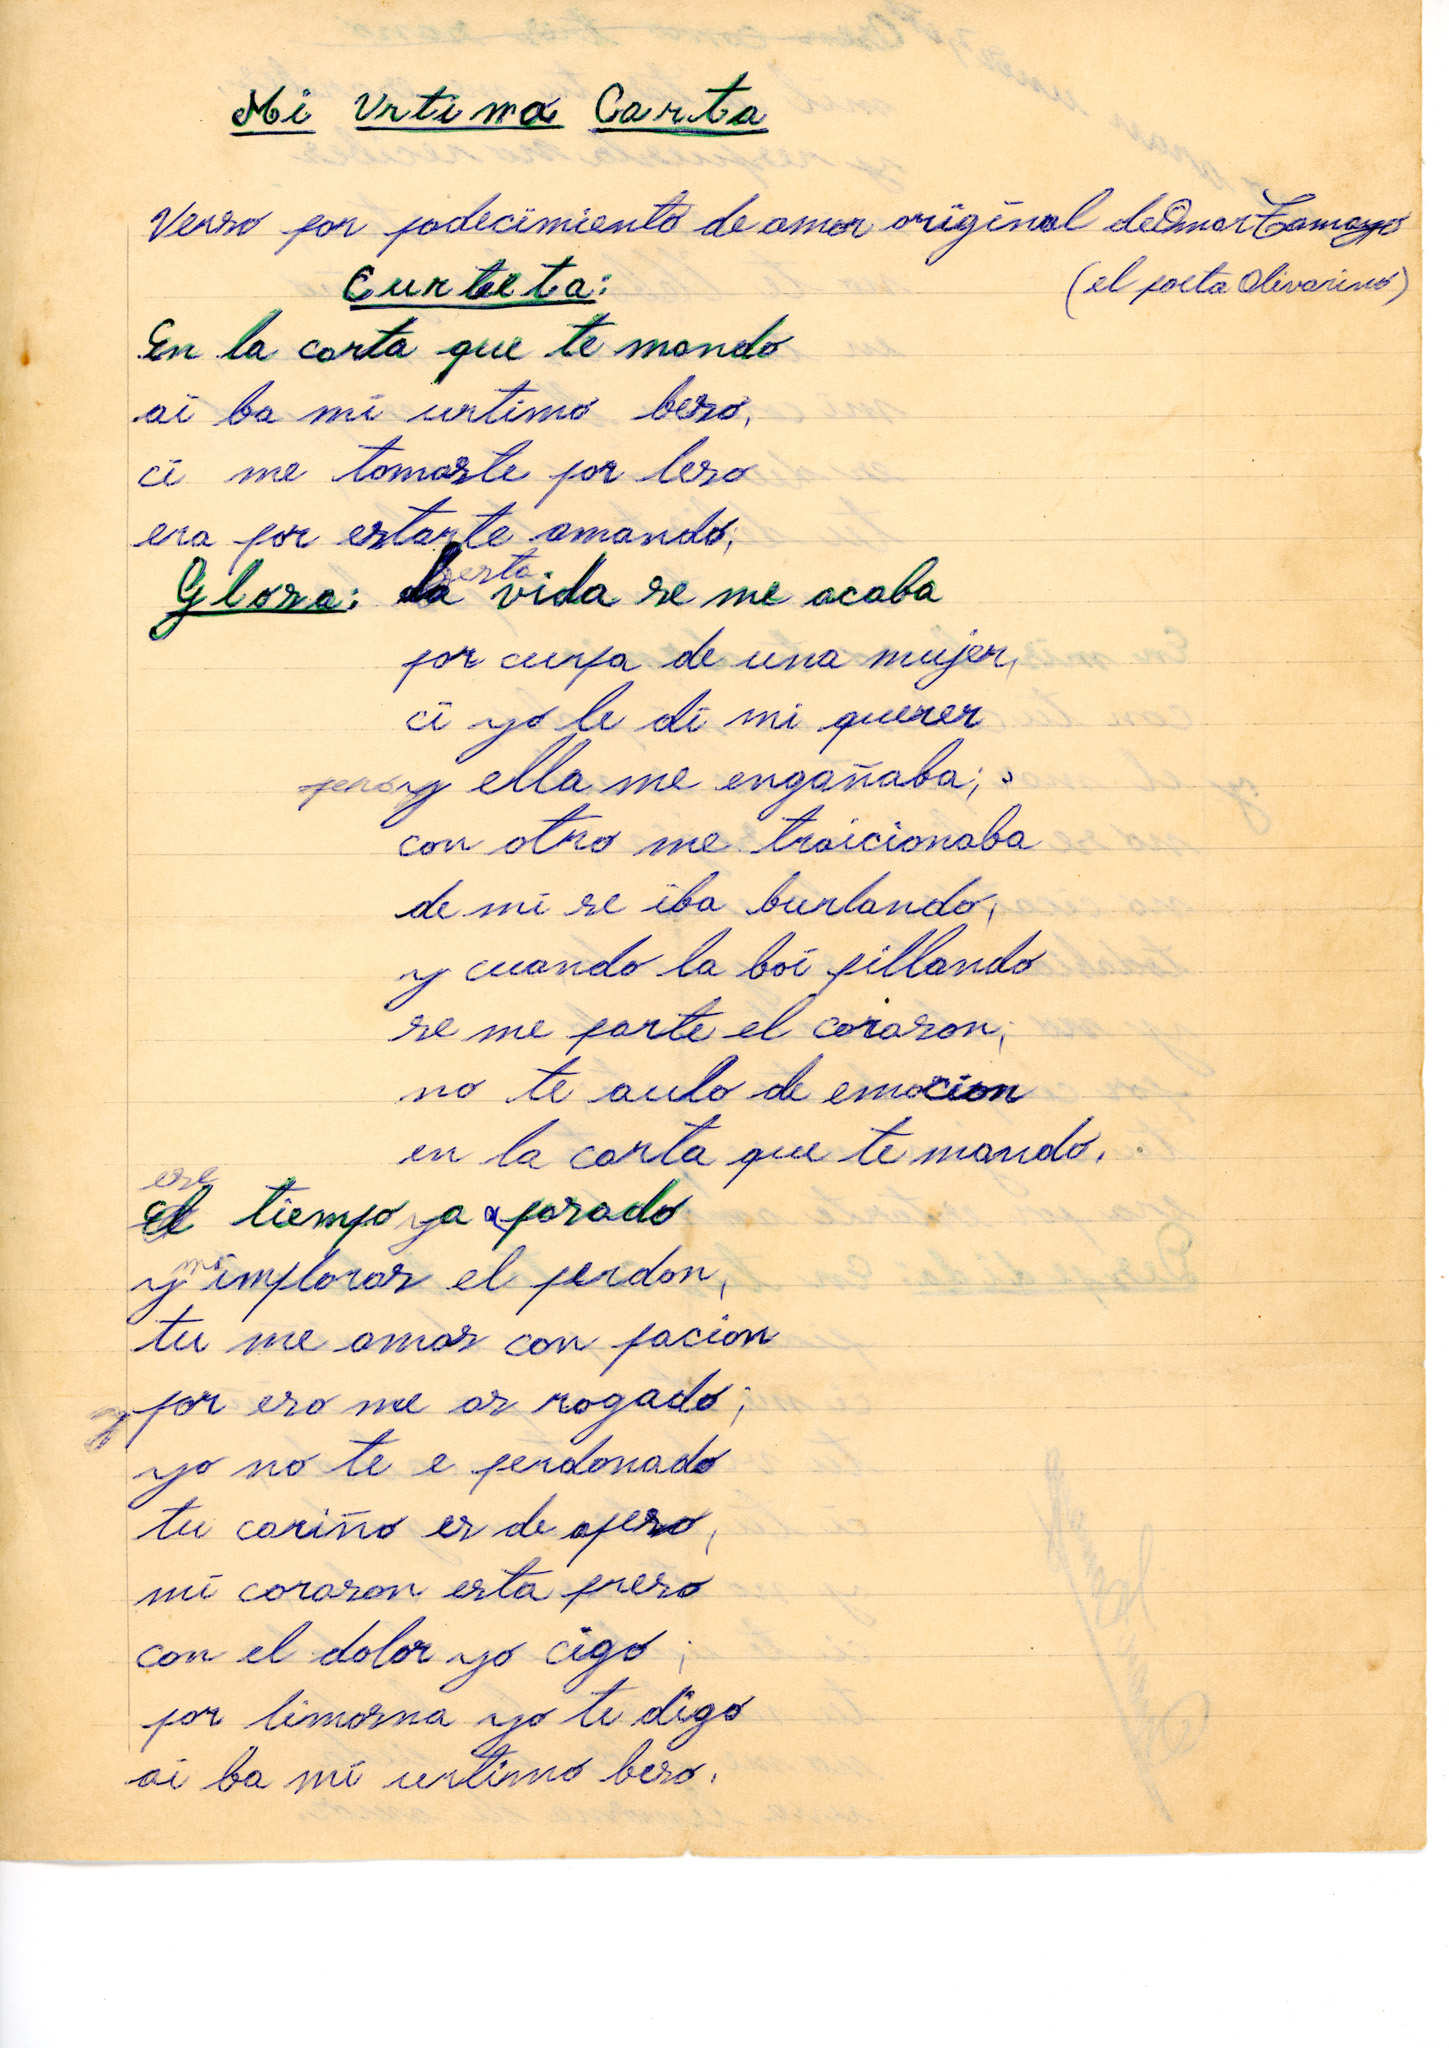 Mi Urtima Carta
Verso por padecimiento de amor original de Omar Tamayo
(el poeta Olivarino)
Curteta:
En la carta que te mando
ai ba mi urtimo beso,
ci me tomaste por leso
era por estarte amando;
esta
Glosa: La vida se me acaba
por curpa de una mujer,
ci yo le di mi querer
pero y ella me engañaba;
con otro me traicionaba
de mi se iba burlando,
y cuando la boi pillando
se me parte el corason;
no te aulo de emocion
en la carta que te mando.
ese
el tiempo ya a pasado
y me imploras el perdon,
tu me amas con pacion
y por eso me as rogado;
yo no te e perdonado
tu cariño es de apeso,
mi corason esta preso
con el dolor yo cigo;
por limosna yo te digo
ai ba mi urtimo beso.